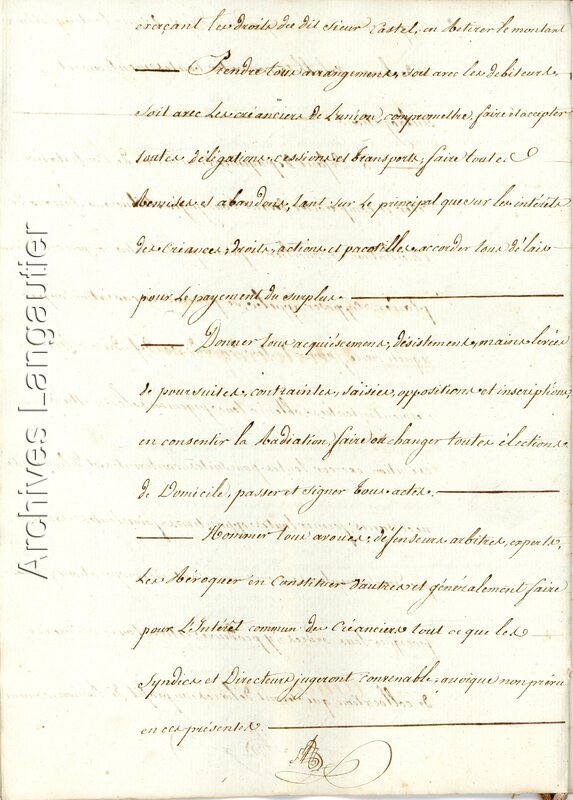 exerçant les droits du dit Sieur Castel, en Retirer le montant
Prendre tous arrangemens, soit avec les debiteurs,
soit avec Les créanciers de L'union, compromettre, faire et accepter
toutes déligations, cessions et transports, faire toutes
Remises et abandons, tant sur Le principal que sur les intérêts
des créances, droits, actions et pacotilles, accorder tous délais
pour Le payement du surplus.
Donner tous acquiéscemens, désistemens, mains levées
de poursuites, contraintes, saisies, oppositions et inscriptions,
en consentir la Radiation, faire ou changer toutes élections
de Domicile, passer et signer tous actes.
Nommer tous avoués, défenseurs arbitres, experts,
Les Révoquer en Constituer d'autres et généralement faire
pour L'Intérêt commun des Créanciers tout ce que les
Syndics et Directeurs jugeront convenable, quoique non prévu
en ces présentes
Archives Langautier